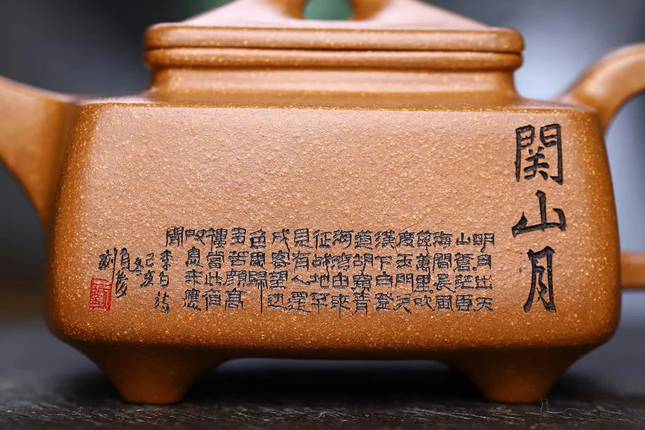 関山月
明月出天
山蒼茫雲
海間長風
幾萬里吹
度玉門关
漢下白登
道胡窺青
海湾由來
征战地不
見有人還
戍客望边
色思歸
多苦顏高
樓當此
叹息未應
閒
李白詩
己亥
冬
刻